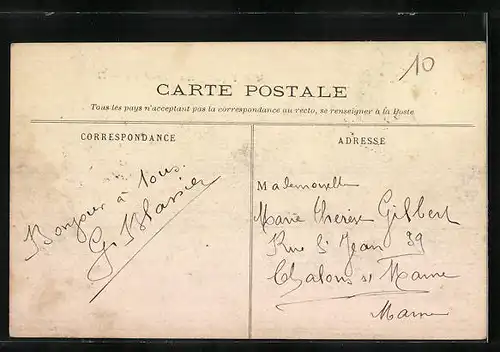 10
CARTE POSTALE
Tous les pays n'acceptant pas la correspondance au recto, se renseigner à la Poste
CORRESPONDANCE
Bonjour à tous.
G
ADRESSE
Mademoiselle
Marie Thérèse Gilbert
Rue St Jean 39
Chalons s/ Marne
Marne